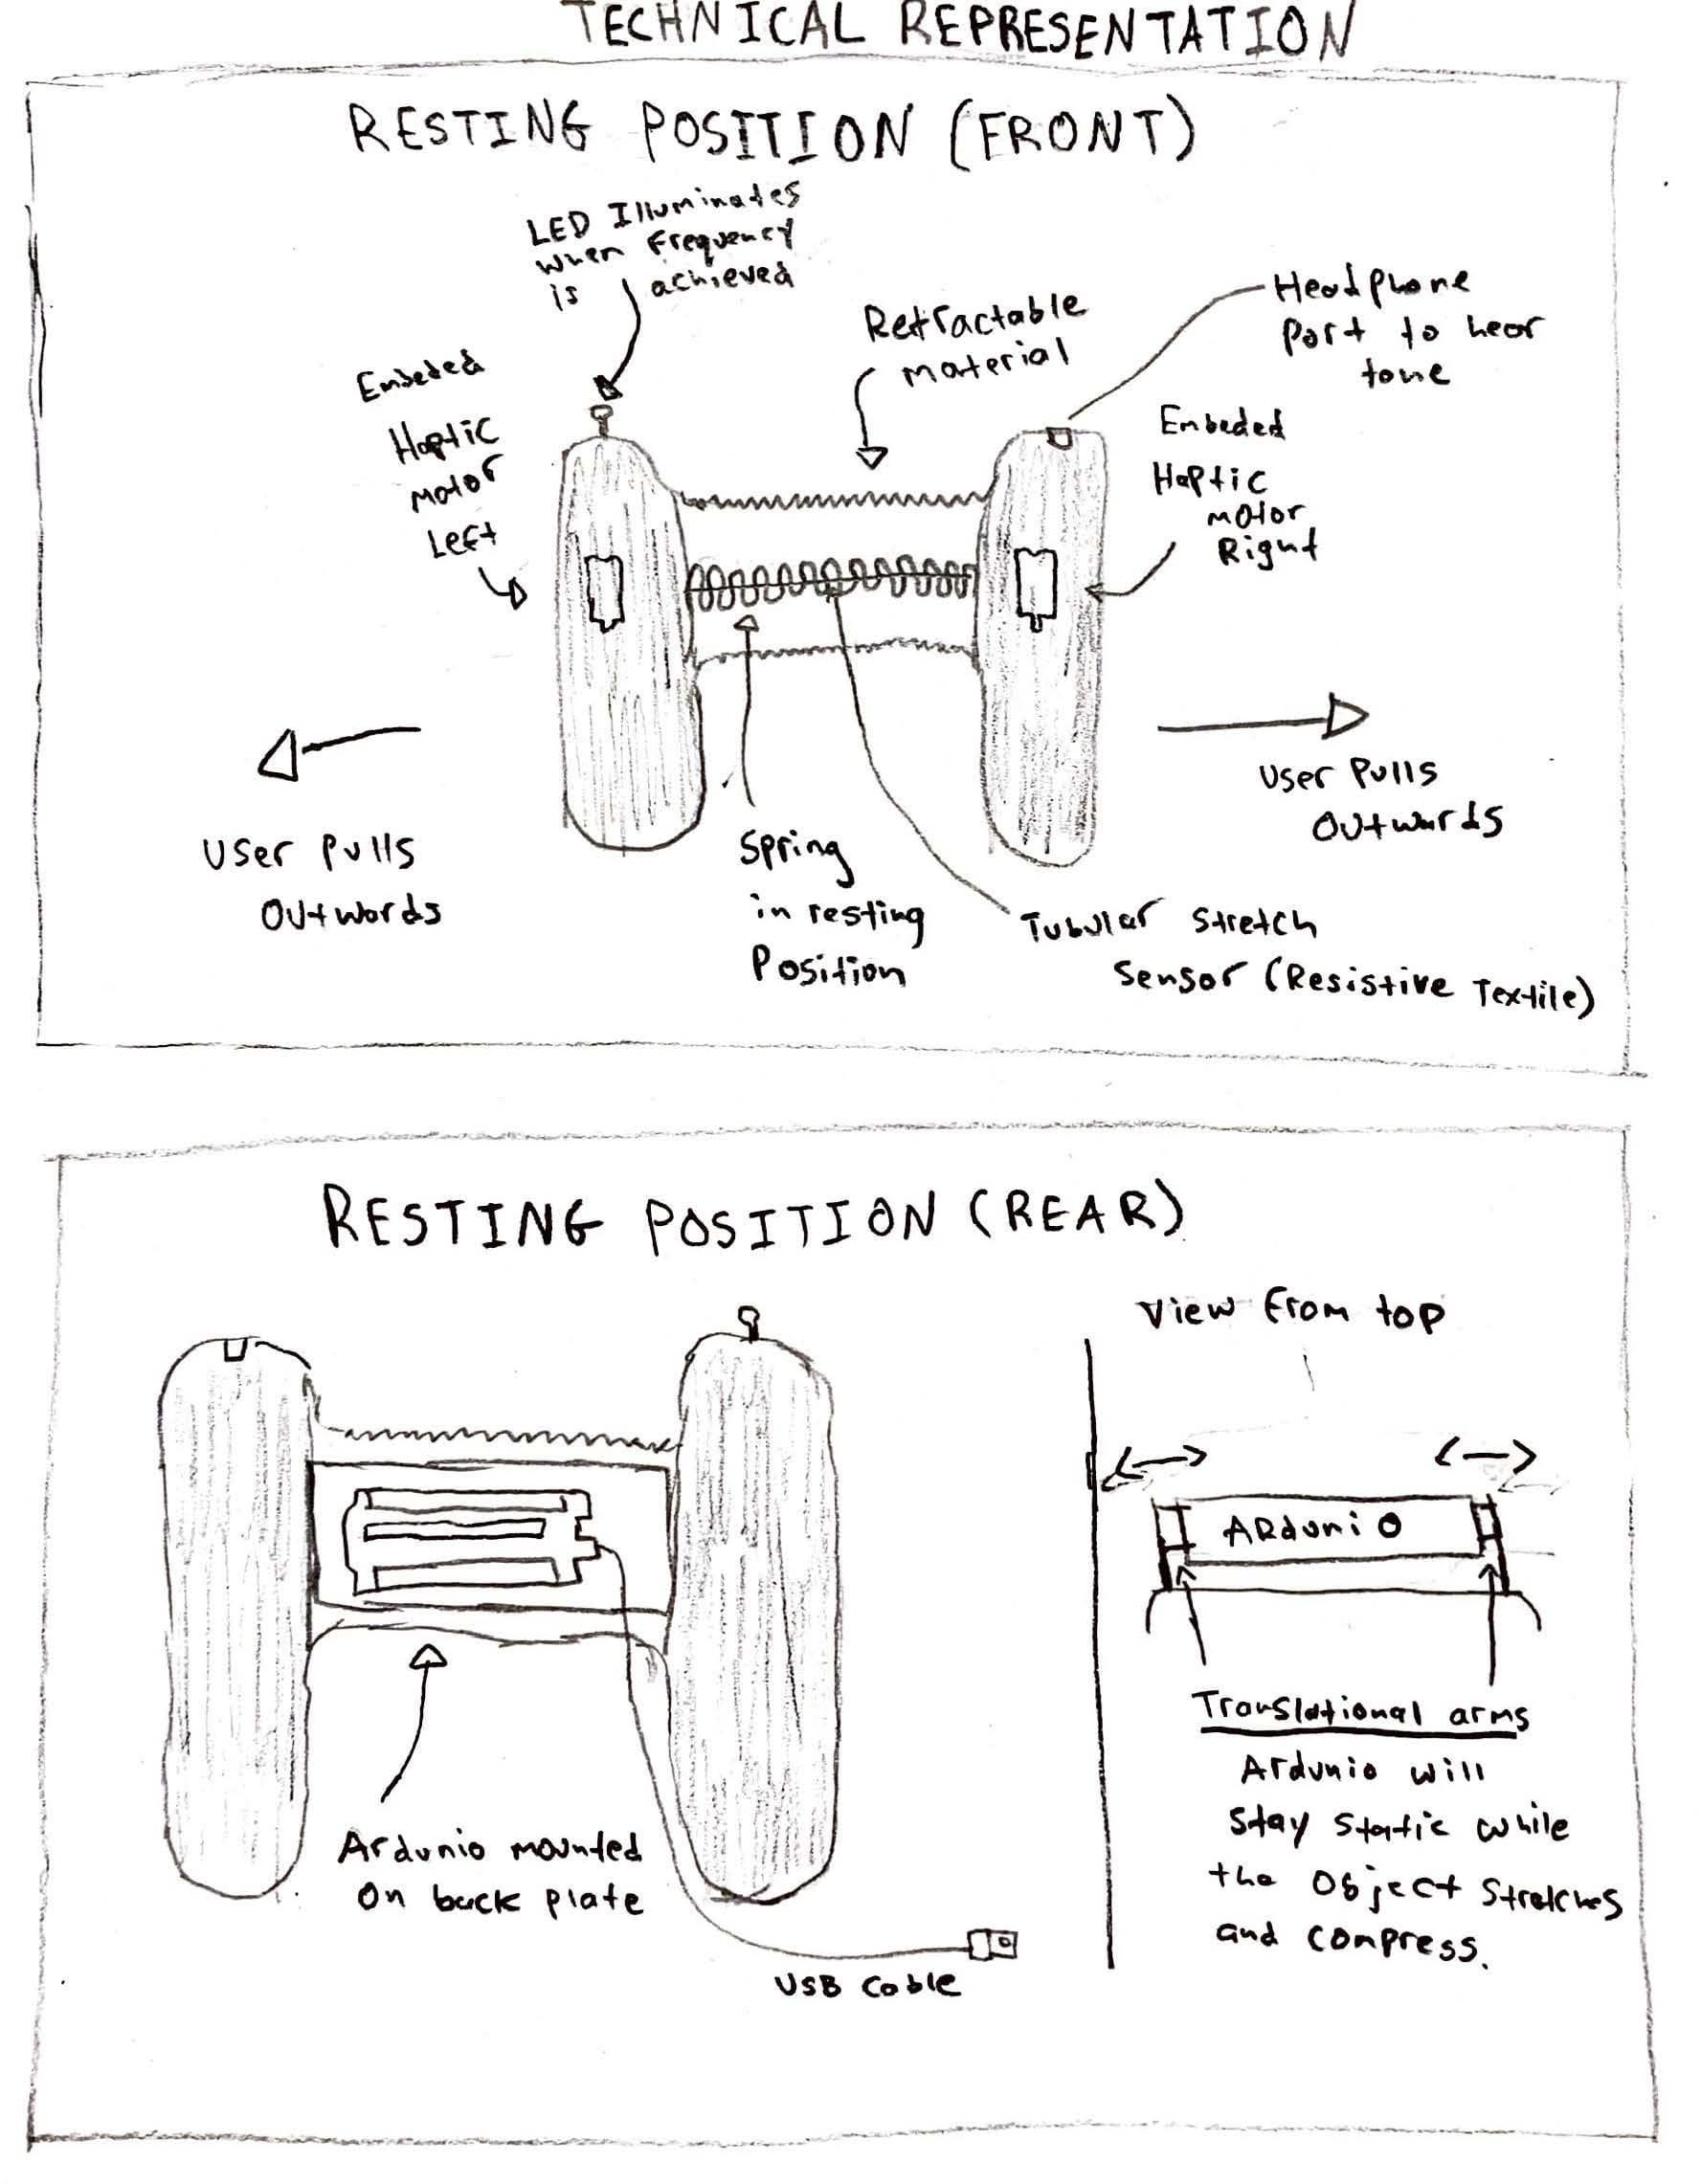 TECHNICAL REPRESENTATION
RESTING POSITION (FRONT)
LED Illuminates
when Frequency
is achieved
Retractable
material
Headphone
Port to hear
tone
Embeded
Haptic
Motor
Left
Embeded
Haptic
motor
Right
User Pulls
Outwords
User Pulls
Outwards
Spring
in resting
Position
Tubular Stretch
Sensor (Resistive Textile)
RESTING POSITION (REAR)
View From top
ARdunio
Translational arms
Ardunio will
stay Static while
the Object Stretches
and compress.
Ardunio mounted
On back plate
USB Cable